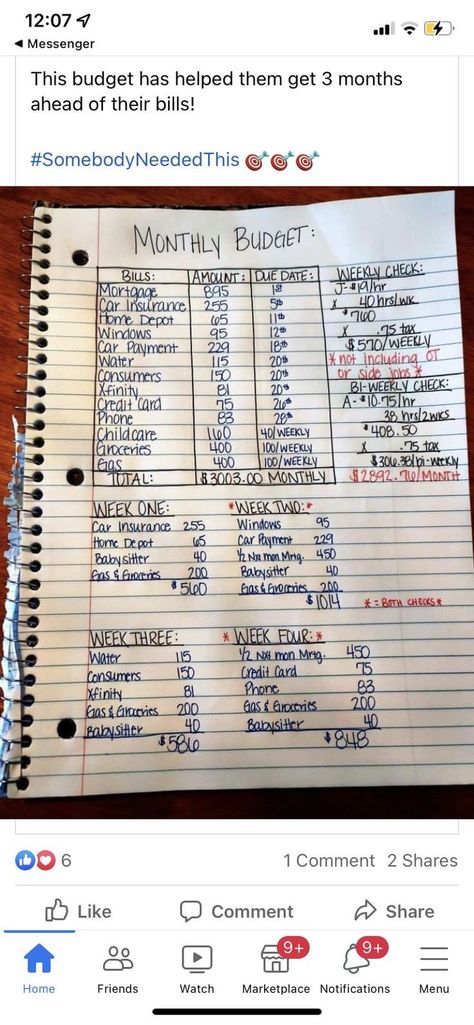 12:07
◀ Messenger
This budget has helped them get 3 months
ahead of their bills!
#SomebodyNeededThis 🎯🎯🎯
MONTHLY BUDGET:
BILLS: AMOUNT: DUE DATE:
Mortgage 895 1st
Car Insurance 255 5th
Home Depot 65 11th
Windows 95 12th
Car Payment 229 18th
Water 115 20th
Consumers 150 20th
Xfinity 81 20th
Credit Card 75 26th
Phone 83 28th
Childcare 160 40/WEEKLY
Groceries 400 100/WEEKLY
Gas 400 100/WEEKLY
TOTAL: $3003.00 MONTHLY
WEEKLY CHECK:
J-$19/hr
x 40hrs/wk
$760
x .75 tax
$570/WEEKLY
*not including OT
or side jobs*
BI-WEEKLY CHECK:
A-$10.75/hr
38 hrs/2wks
$408.50
x .75 tax
$306.38/bi-weekly
$2892.76/MONTH
WEEK ONE:
Car Insurance 255
Home Depot 65
Babysitter 40
Gas & Groceries 200
$560
*WEEK TWO:*
Windows 95
Car Payment 229
1/2 Nxt mon Mrtg. 450
Babysitter 40
Gas & Groceries 200
$1014
*= BOTH CHECKS*
WEEK THREE:
Water 115
Consumers 150
Xfinity 81
Gas & Groceries 200
Babysitter 40
$586
*WEEK FOUR:*
1/2 Nxt mon Mrtg. 450
Credit Card 75
Phone 83
Gas & Groceries 200
Babysitter 40
$848
6
1 Comment 2 Shares
Like Comment Share
9+ 9+
Home Friends Watch Marketplace Notifications Menu